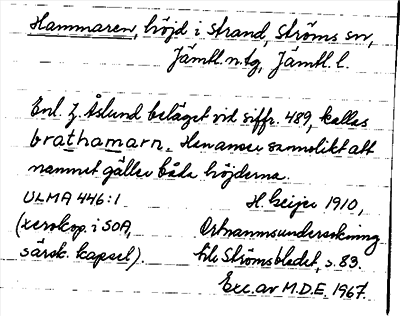 Hammaren, höjd i Strand, Ströms sn,
Jämtl. n. tg, Jämtl. l.
Enl. Z. Åslund beläget vid siffr. 489, kallas
brathamarn. Han anser sannolikt att
namnet gäller båda höjderna.
ULMA 446:1 H. Geijer 1910,
(xerokop. i SOA, Ortnamnsundersökning
särsk. kapsel). tile Strömsbladet, s. 83.
Exc. av M.D.E. 1967.